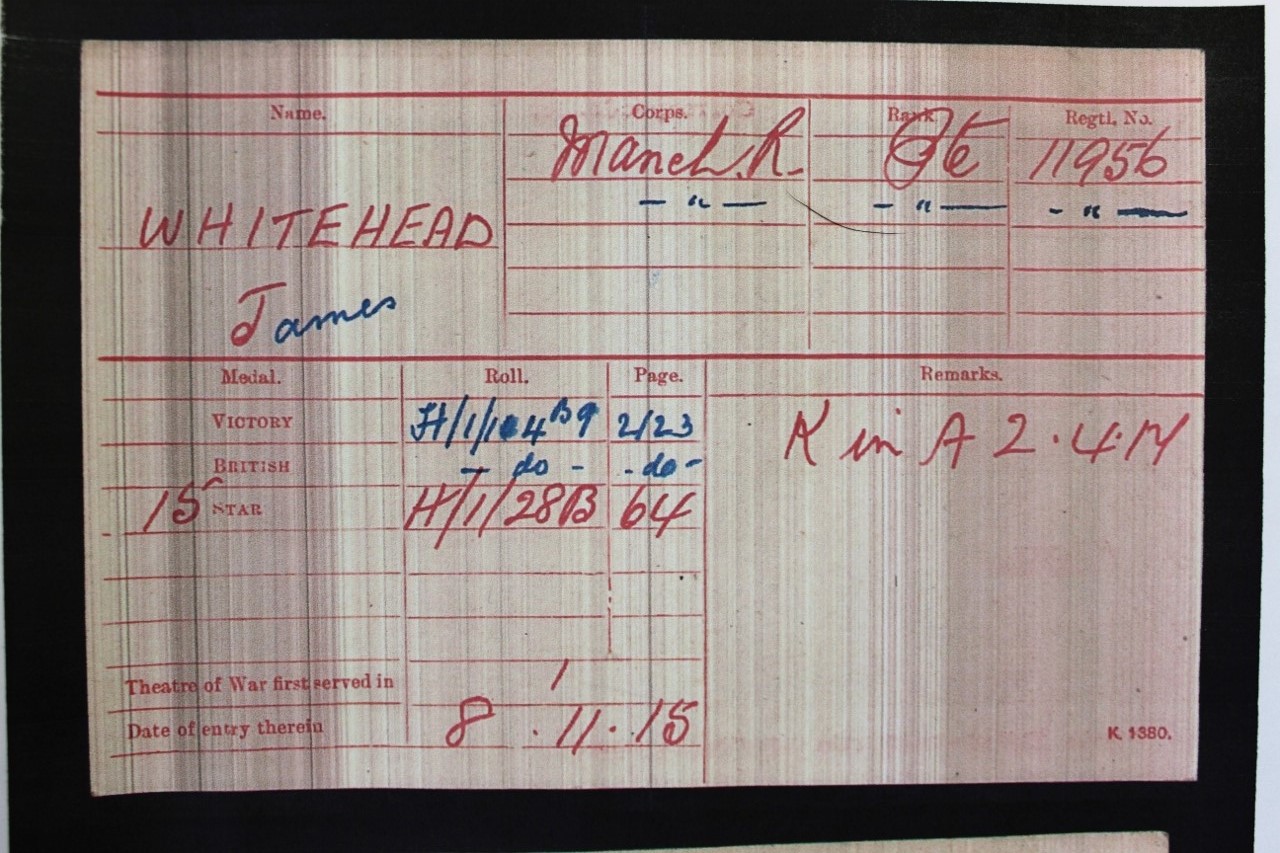 Name. Corps. Rank. Regtl. No.
Manch. R. Pte 11956
— " — — " — - " —
WHITEHEAD
James
Medal. Roll. Page. Remarks.
VICTORY H/1/104 B9 2123 K in A 2.4.17
BRITISH - do - - do -
15 STAR H/1/28B 64
Theatre of War first served in 1
Date of entry therein 8.11.15
K. 1380.